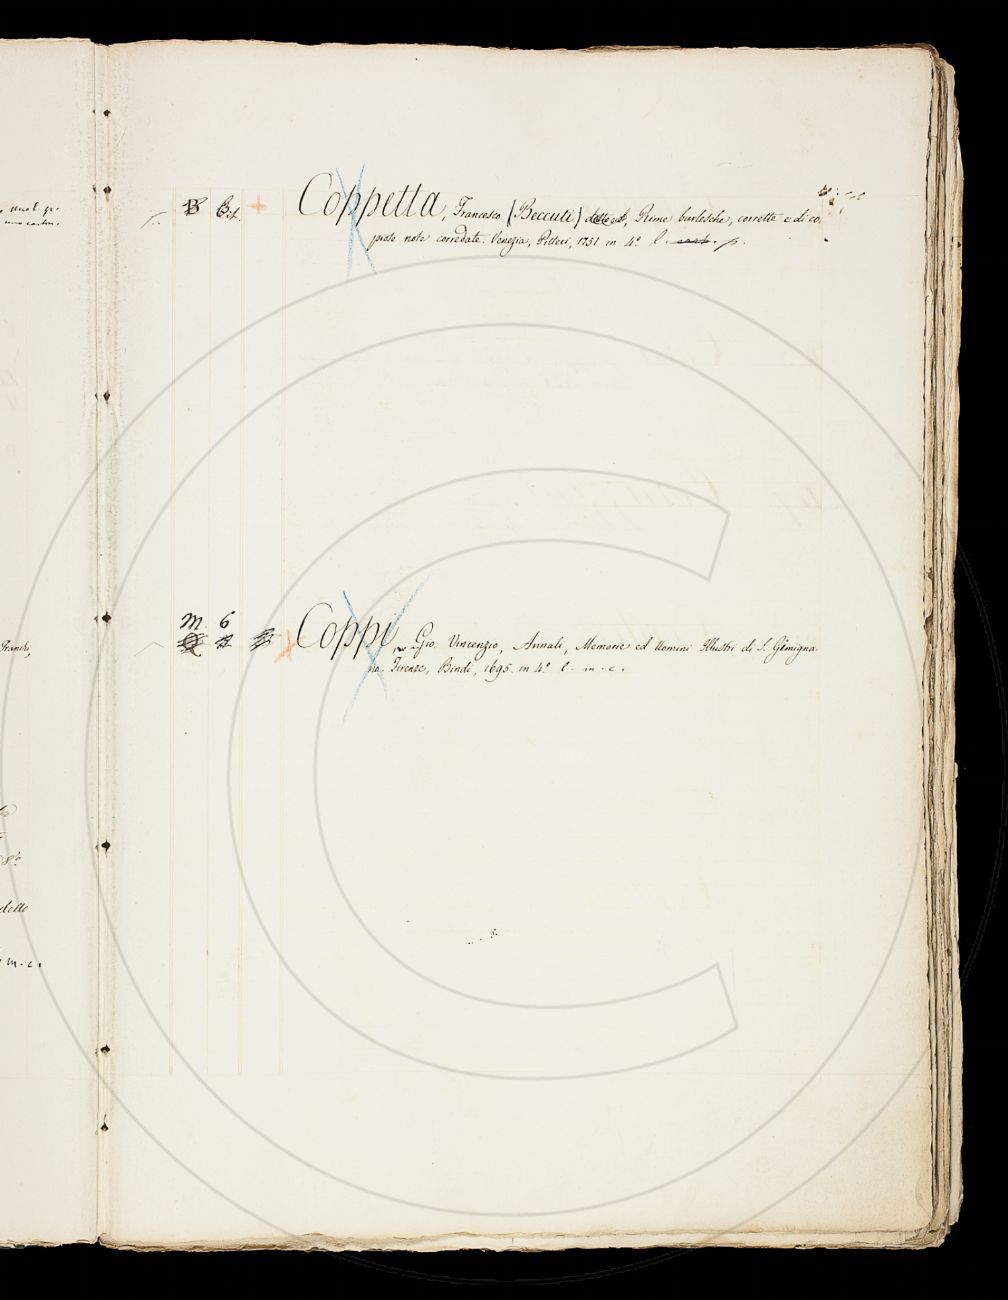 Franchi,
8°
dette
m. c.
B
Coppetta, Francesco (Beccuti) Rime burlesche, corrette e di co
piose note corredate. Venezia, Pitteri, 1751 in 4° l. cart. p.
M. 6
Coppi, Gio. Vincenzio, Annali, Memorie ed Uomini Illustri di S. Gemigna
no. Firenze, Bindi, 1695. in 4° l. m. c.